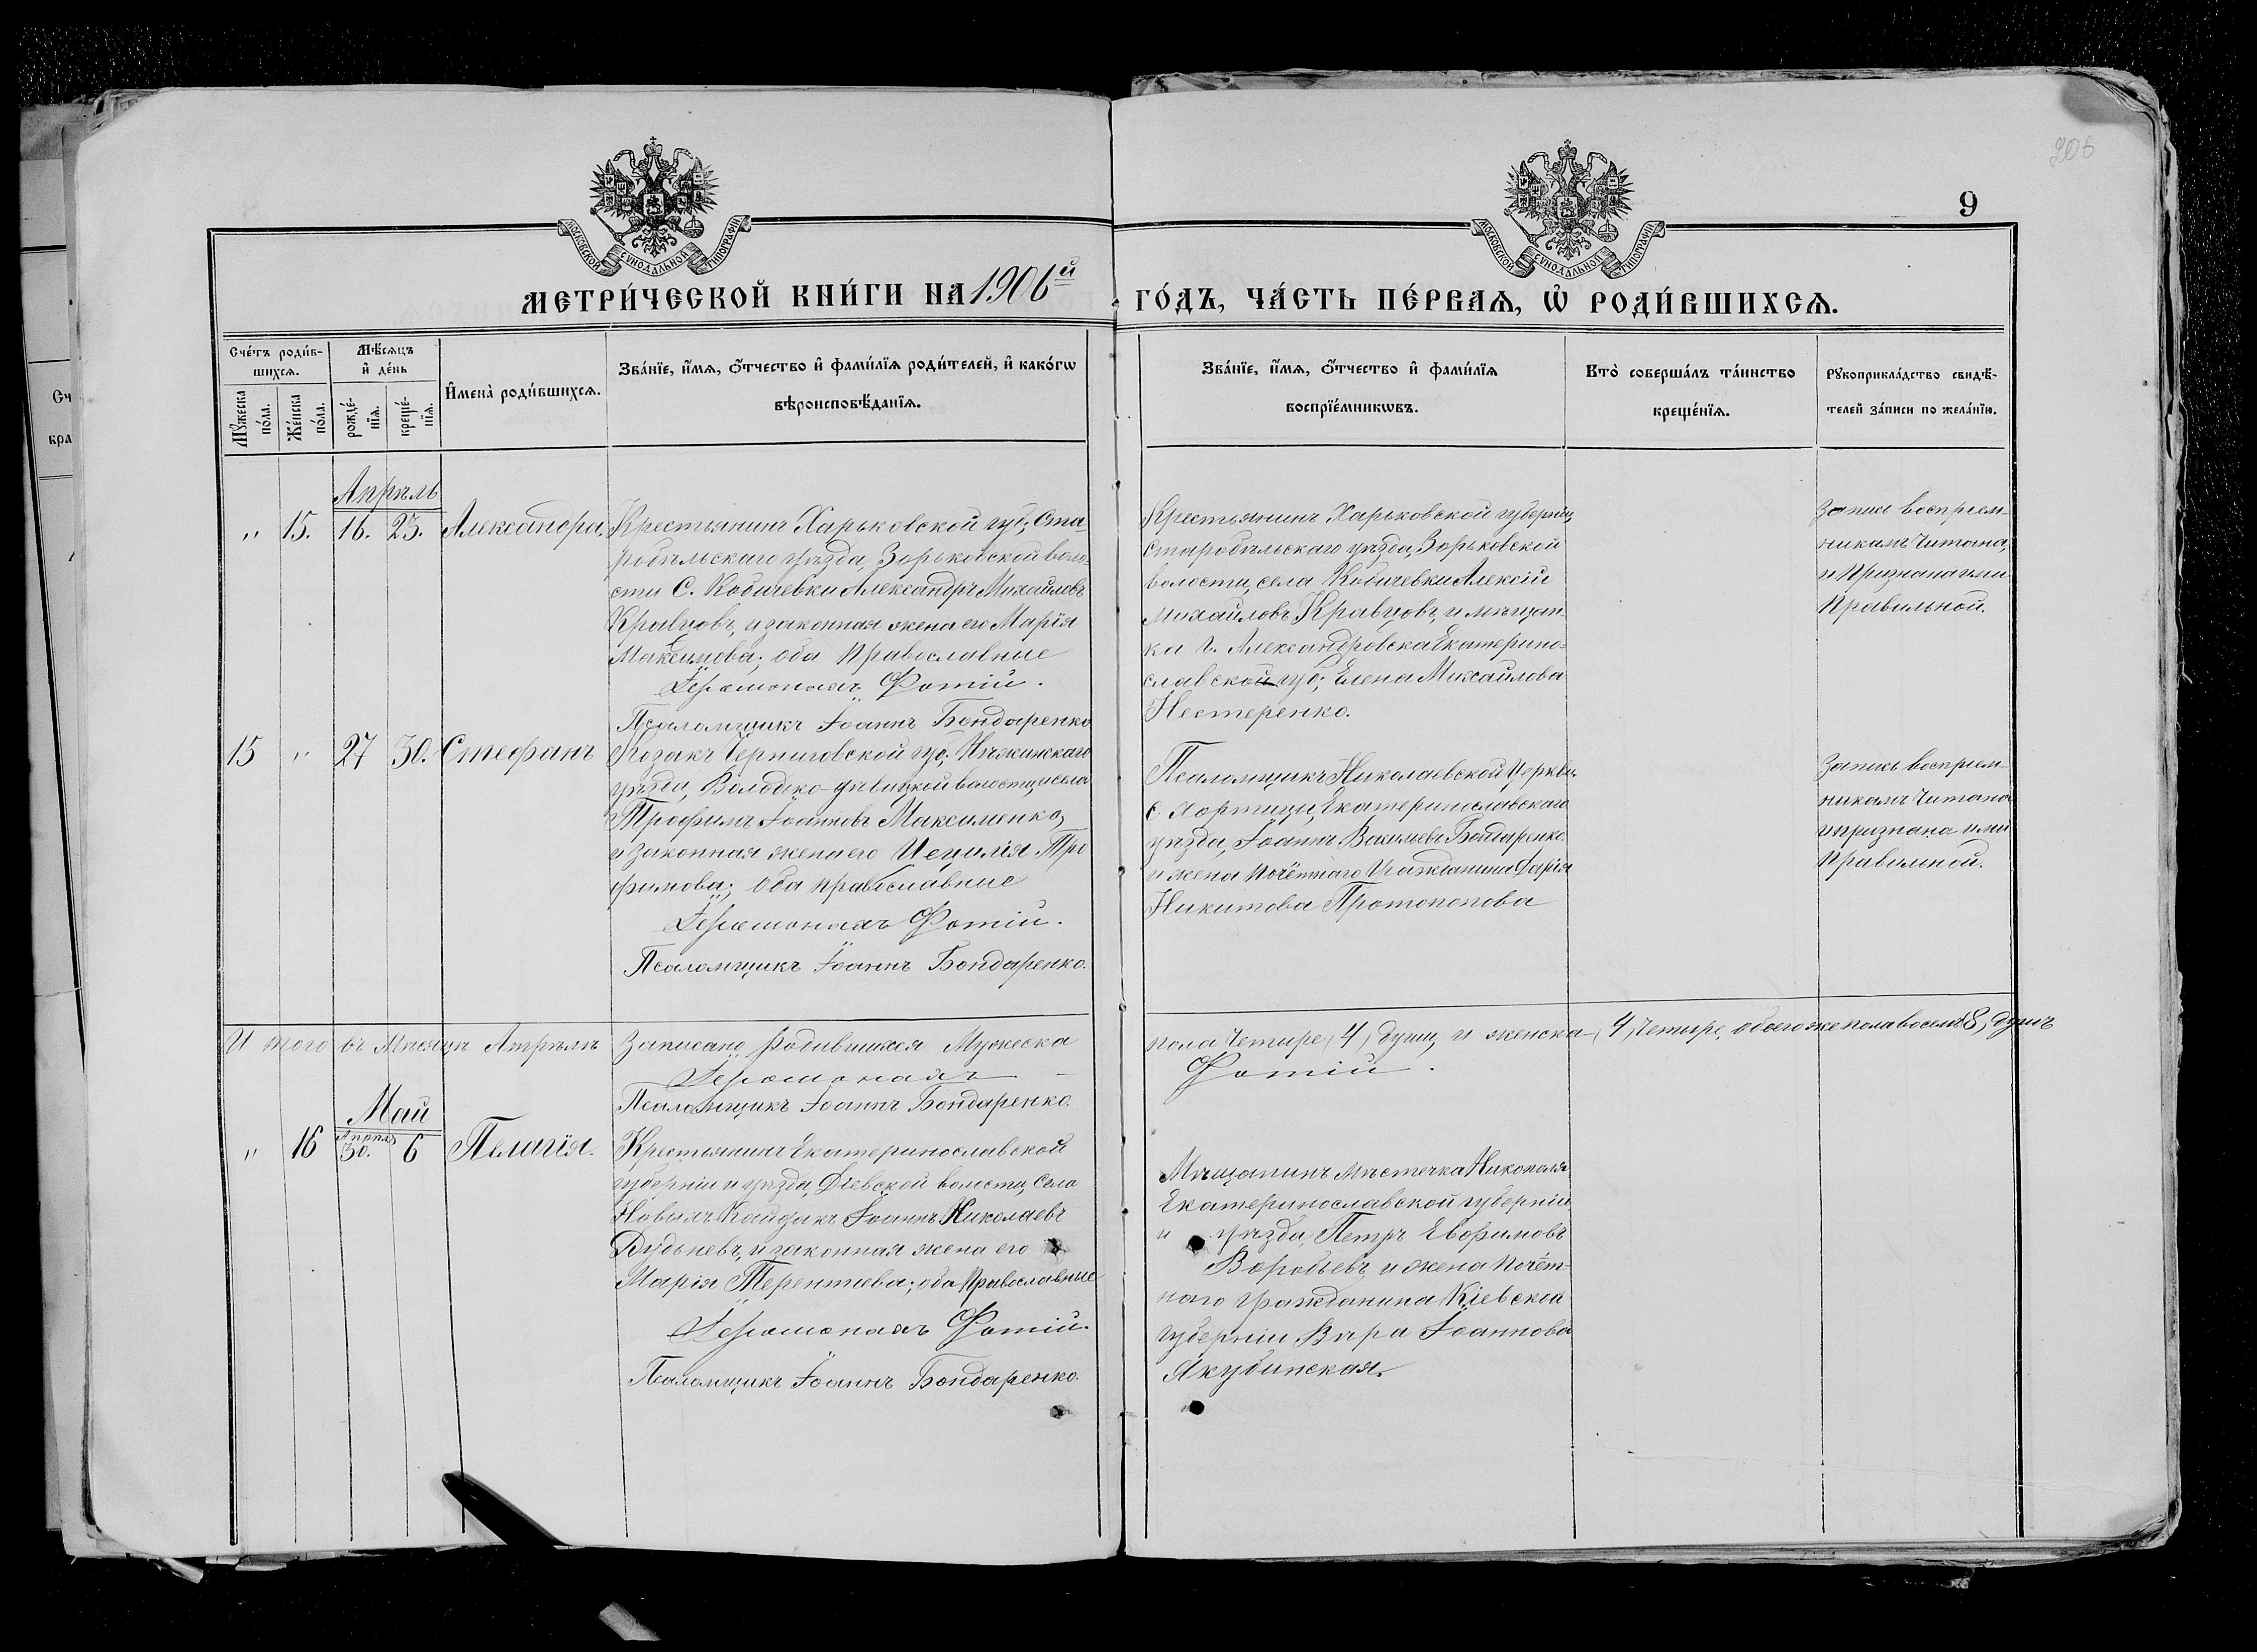 206
9
МОСКОВСКОЙ СѴНОДАЛЬНОЙ ТИПОГРАФІИ
МОСКОВСКОЙ СѴНОДАЛЬНОЙ ТИПОГРАФІИ
МЕТРИ́ЧЕСКОЙ КНИ́ГИ НА 1906й ГО́ДЪ, ЧА́СТЬ ПЕ́РВАѦ, Ѽ РОДИ́ВШИХСѦ.
Сче́тъ роди́в-
шихсѧ.
Мꙋжеска по́ла.
Же́нска по́ла.
Мѣ́сѧцъ
и҆ де́нь
рожде́-
нїѧ.
креще́-
нїѧ.
И҆мена̀ роди́вшихсѧ.
Зва́нїе, и҆́мѧ, ѻ҆́тчество и҆ фами́лїѧ роди́телей, и҆ како́гѡ
вѣроисповѣ́данїѧ.
Зва́нїе, и҆́мѧ, ѻ҆́тчество и҆ фами́лїѧ
воспрїе́мникѡвъ.
Кто̀ соверша́лъ та́инство
креще́нїѧ.
Рꙋкоприкла́дство свидѣ́-
телей за́писи по жела́нїю.
Апрѣль
" 15. 16. 23. Александра.
Крестьянинъ Харьковской губ; Ста-
робѣльскаго уѣзда, Зорьковской воло-
сти С. Кабичевки Александръ Михайловъ
Кравцовъ, и законная жена его Марія
Максимова; оба Православные
Іеромонахъ Фотій.
Псаломщикъ Іоаннъ Бондаренко
Крестьянинъ Харьковской губерніи,
Старобѣльскаго уѣзда, Зорьковской
волости, села Кобичевки Алексій
Михайловъ Кравцовъ, и мѣщан-
ка г. Александровска Екатерино-
славской губ; Елена Михайлова
Нестеренко.
Запись воспріем-
никамъ читана,
и Признана ими
Правильной.
15 " 27 30. Стефанъ
Козакъ Черниговской губ; Нѣжинскаго
уѣзда, Володько-дѣвицкой волости, и села
Трофимъ Іоанновъ Максименко,
и законная жена его Иецилія Тро
фимова; оба православные
Іеромонахъ Фотій.
Псаломщикъ Іоаннъ Бондаренко.
Псаломщикъ Николаевской Церкви
с. Хортицы, Екатеринославскаго
уѣзда, Іоаннъ Васильевъ Бондаренко
и жена Почётнаго Гражданина Дарія
Никитова Протопопова
Запись воспріем-
никамъ читана
и признана ими
Правильной.
И того въ Мѣсяцѣ Апрѣлѣ Записано родившихся Мужеска пола Четыре, 4, души, и женска 4, четыре, обоего же пола восемь 8, душъ
Іеромонахъ Фотій.
Псаломщикъ Іоаннъ Бондаренко.
Май
" 16 Апрѣля 30. 6 Пелагія.
Крестьянинъ Екатеринославской
губерніи и уѣзда, Діевской волости, Села
Новыхъ Кайдакъ Іоаннъ Николаевъ
Дудьневъ, и законная жена его
Марія Терентиева; оба Православные
Іеромонахъ Фотій.
Псаломщикъ Іоаннъ Бондаренко.
Мѣщанинъ мѣстечка Никополя
Екатеринославской губерніи
и уѣзда, Петръ Евфимовъ
Воробьевъ, и жена Почёт-
наго гражданина Кіевской
губерніи Вѣра Іоаннова
Якубинская.